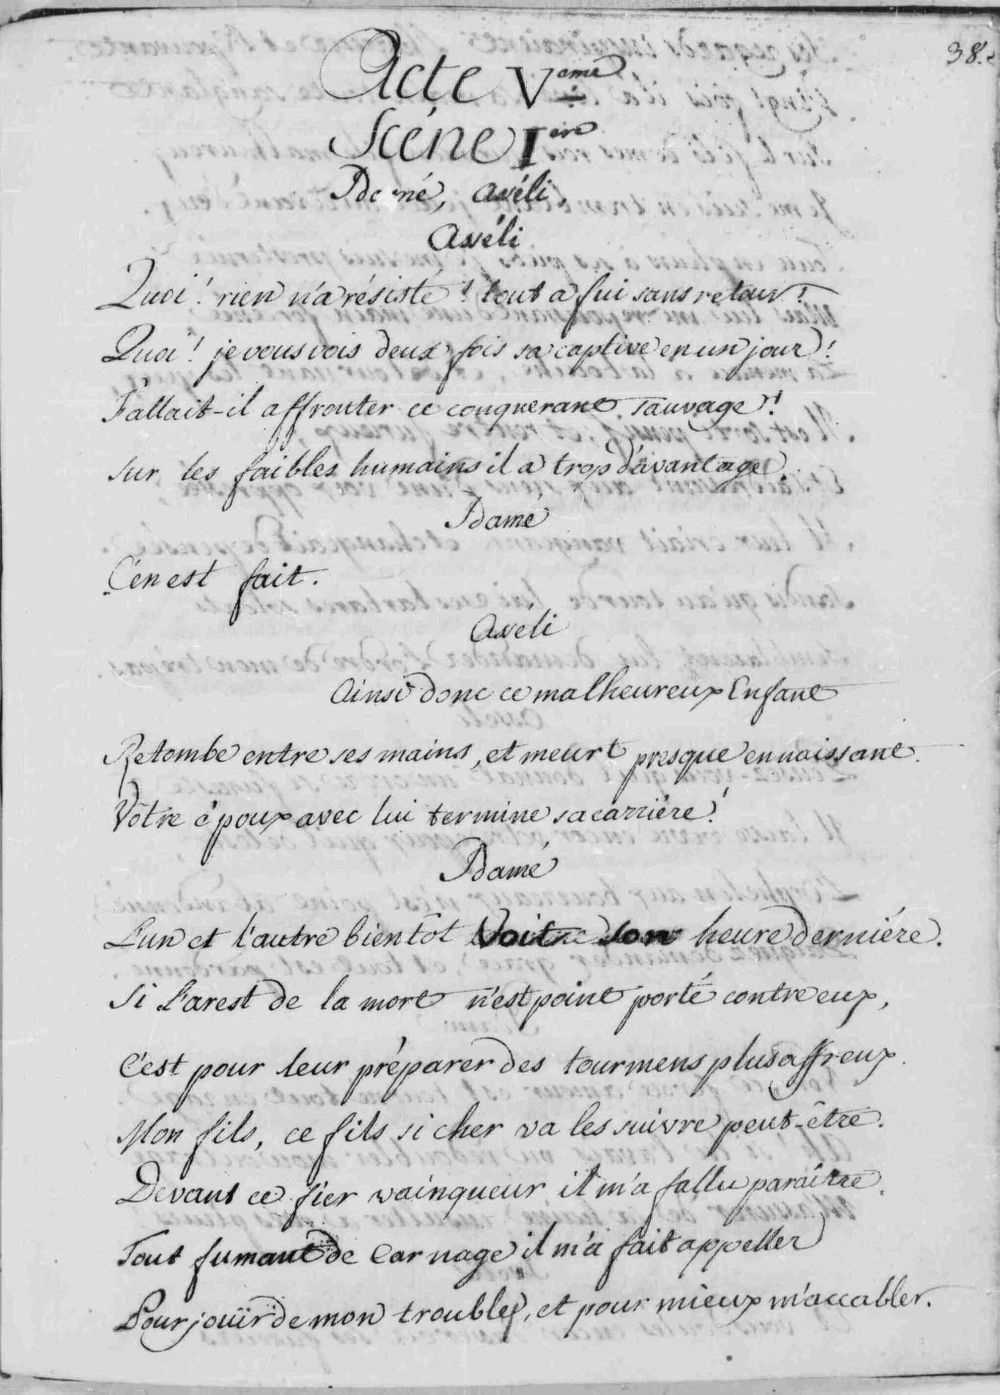 38.
Acte Veme
Scéne Iere
Idamé, aséli
Aséli
Quoi! rien n'a résisté! tout a fui sans retour!
Quoi! je vous vois deux fois sa captive en un jour!
Fallait-il affronter ce conquerant sauvage!
sur les faibles humains il a trop d'avantage.
Idamé
C'en est fait.
Aséli
Ainsi donc ce malheureux Enfant
Retombe entre ses mains, et meurt presque en naissant.
Vôtre époux avec lui termine sa carriére!
Idamé
L'un et l'autre bientôt voit son heure derniére.
Si L'arest de la mort n'est point porté contre eux,
C'est pour leur préparer des tourmens plus affreux.
Mon fils, ce fils si cher va les suivre peut-être.
Devant ce fier vainqueur il m'a fallu paraître.
Tout fumant de Carnage il m'a fait appeller
Pour joüir de mon trouble, et pour mieux m'accabler.